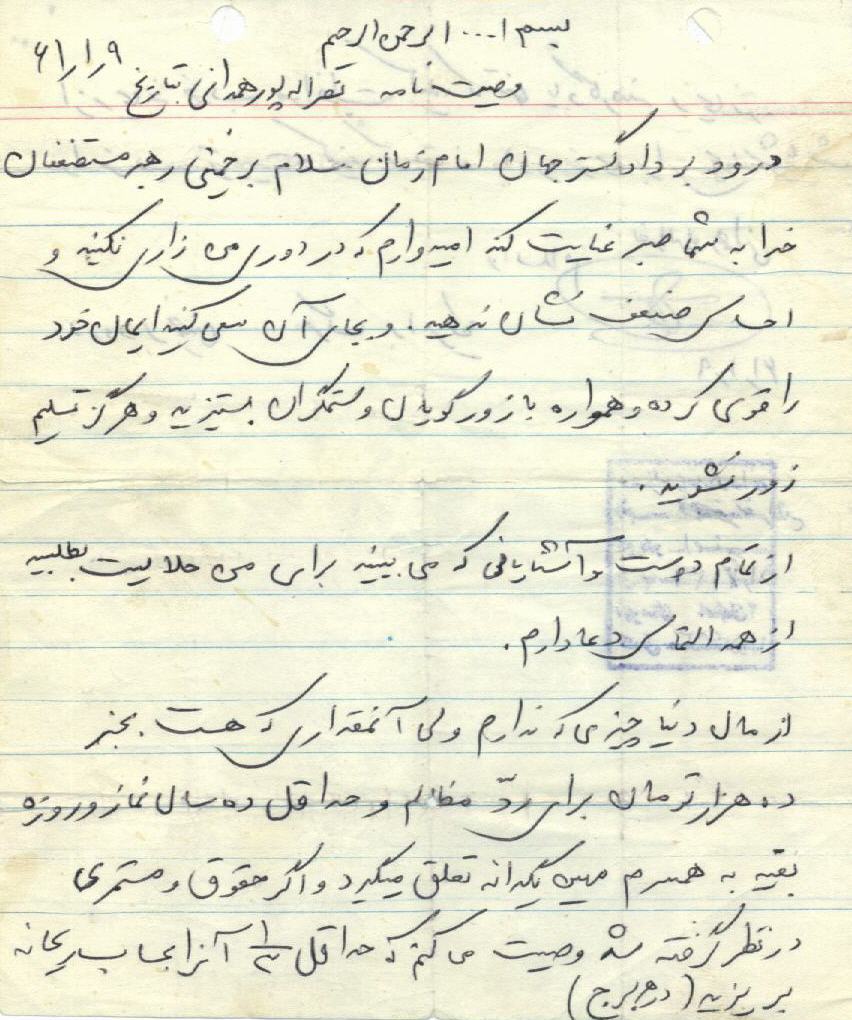 بسم ا... الرحمن الرحیم
وصیت نامه نصراله پورهمدانی بتاریخ ۶۱/۱/۹
درود بر دادگستر جهان امام زمان سلام بر خمینی رهبر مستضعفان
خدا به شما صبر عنایت کند امیدوارم که در دوری من زاری نکنید و
احساس ضعف نشان ندهید. و بجای آن سعی کنید ایمان خود
را قوی کرده و همواره با زورگویان و ستمگران بستیزید و هرگز تسلیم
زور نشوید.
از تمام دوست و آشنایانی که می بینید برای من حلالیت بطلبید
از همه التماس دعا دارم.
از مال دنیا چیزی که ندارم ولی آنمقداری که هست بجز
ده هزار تومان برای ردّ مظالم و حداقل ده سال نماز و روزه
بقیه به همسرم مهین یگدانه تعلق میگیرد و اگر حقوق و مستمری
در نظر گرفته شد وصیت می کنم که حداقل آنرا بحساب ریحانه
بریزید (در هر برج)